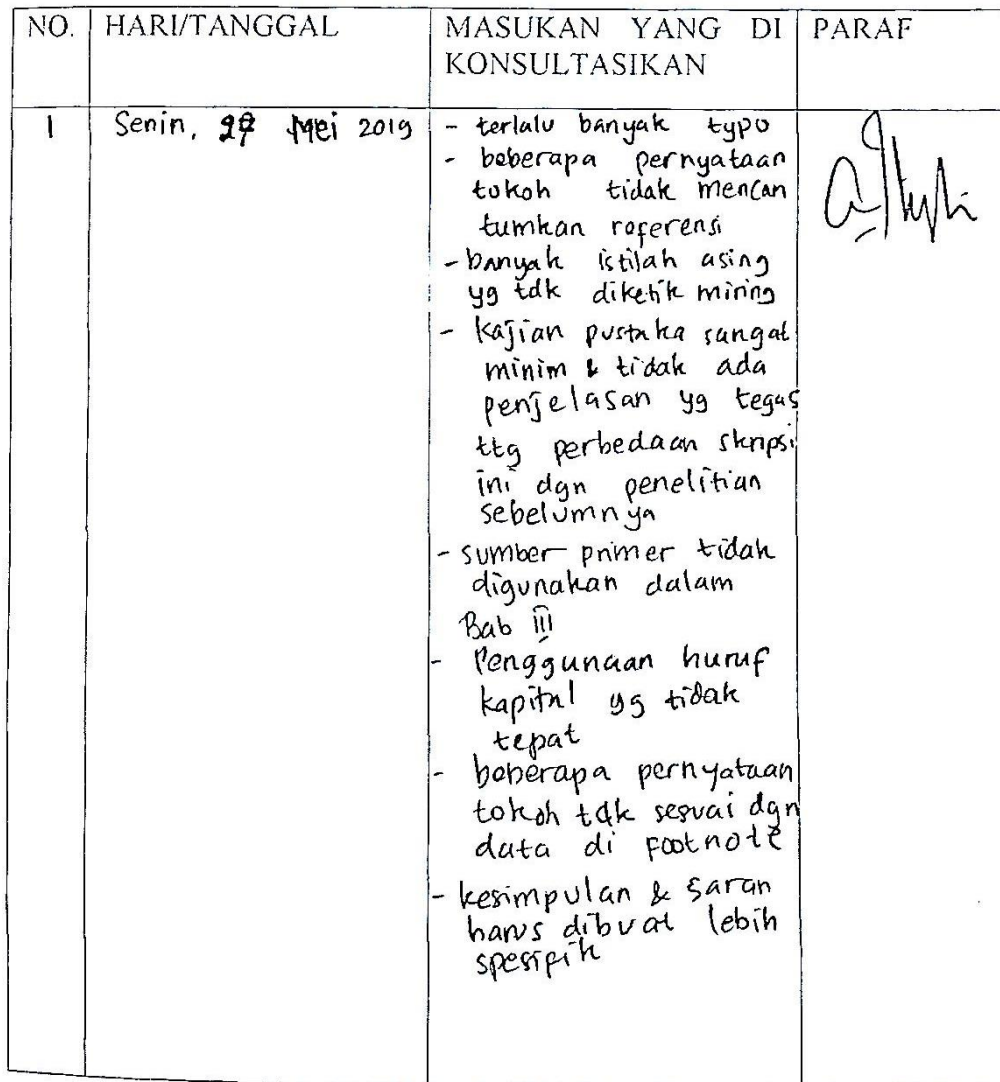 NO. HARI/TANGGAL MASUKAN YANG DI PARAF
KONSULTASIKAN
1 Senin, 27 Mei 2019 - terlalu banyak typo
- beberapa pernyataan
tokoh tidak mencan
tumkan referensi
- banyak istilah asing
yg tdk diketik miring
- kajian pustaka sangat
minim & tidak ada
penjelasan yg tegas
ttg perbedaan skripsi
ini dgn penelitian
sebelumnya
- sumber primer tidak
digunakan dalam
Bab III
- Penggunaan huruf
kapital yg tidak
tepat
- beberapa pernyataan
tokoh tdk sesuai dgn
data di footnote
- kesimpulan & saran
harus dibuat lebih
spesifik